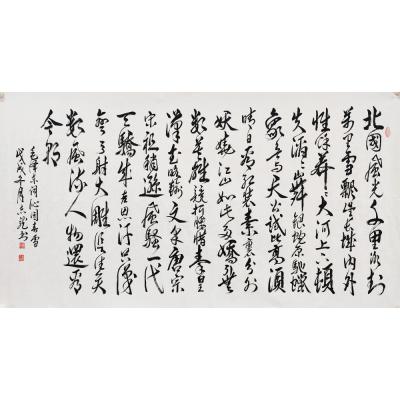 北國風光千里冰封
萬里雪飄望長城內外
惟餘莽莽大河上下頓
失滔滔山舞銀蛇原馳蠟
象欲與天公試比高須
晴日看紅裝素裹分外
妖嬈江山如此多嬌無
數英雄競折腰惜秦皇
漢武略輸文采唐宗
宋祖稍遜風騷一代
天驕成吉思汗只識
彎弓射大雕俱往矣
數風流人物還看
今朝
毛澤東詞沁園春雪
戊戌年月